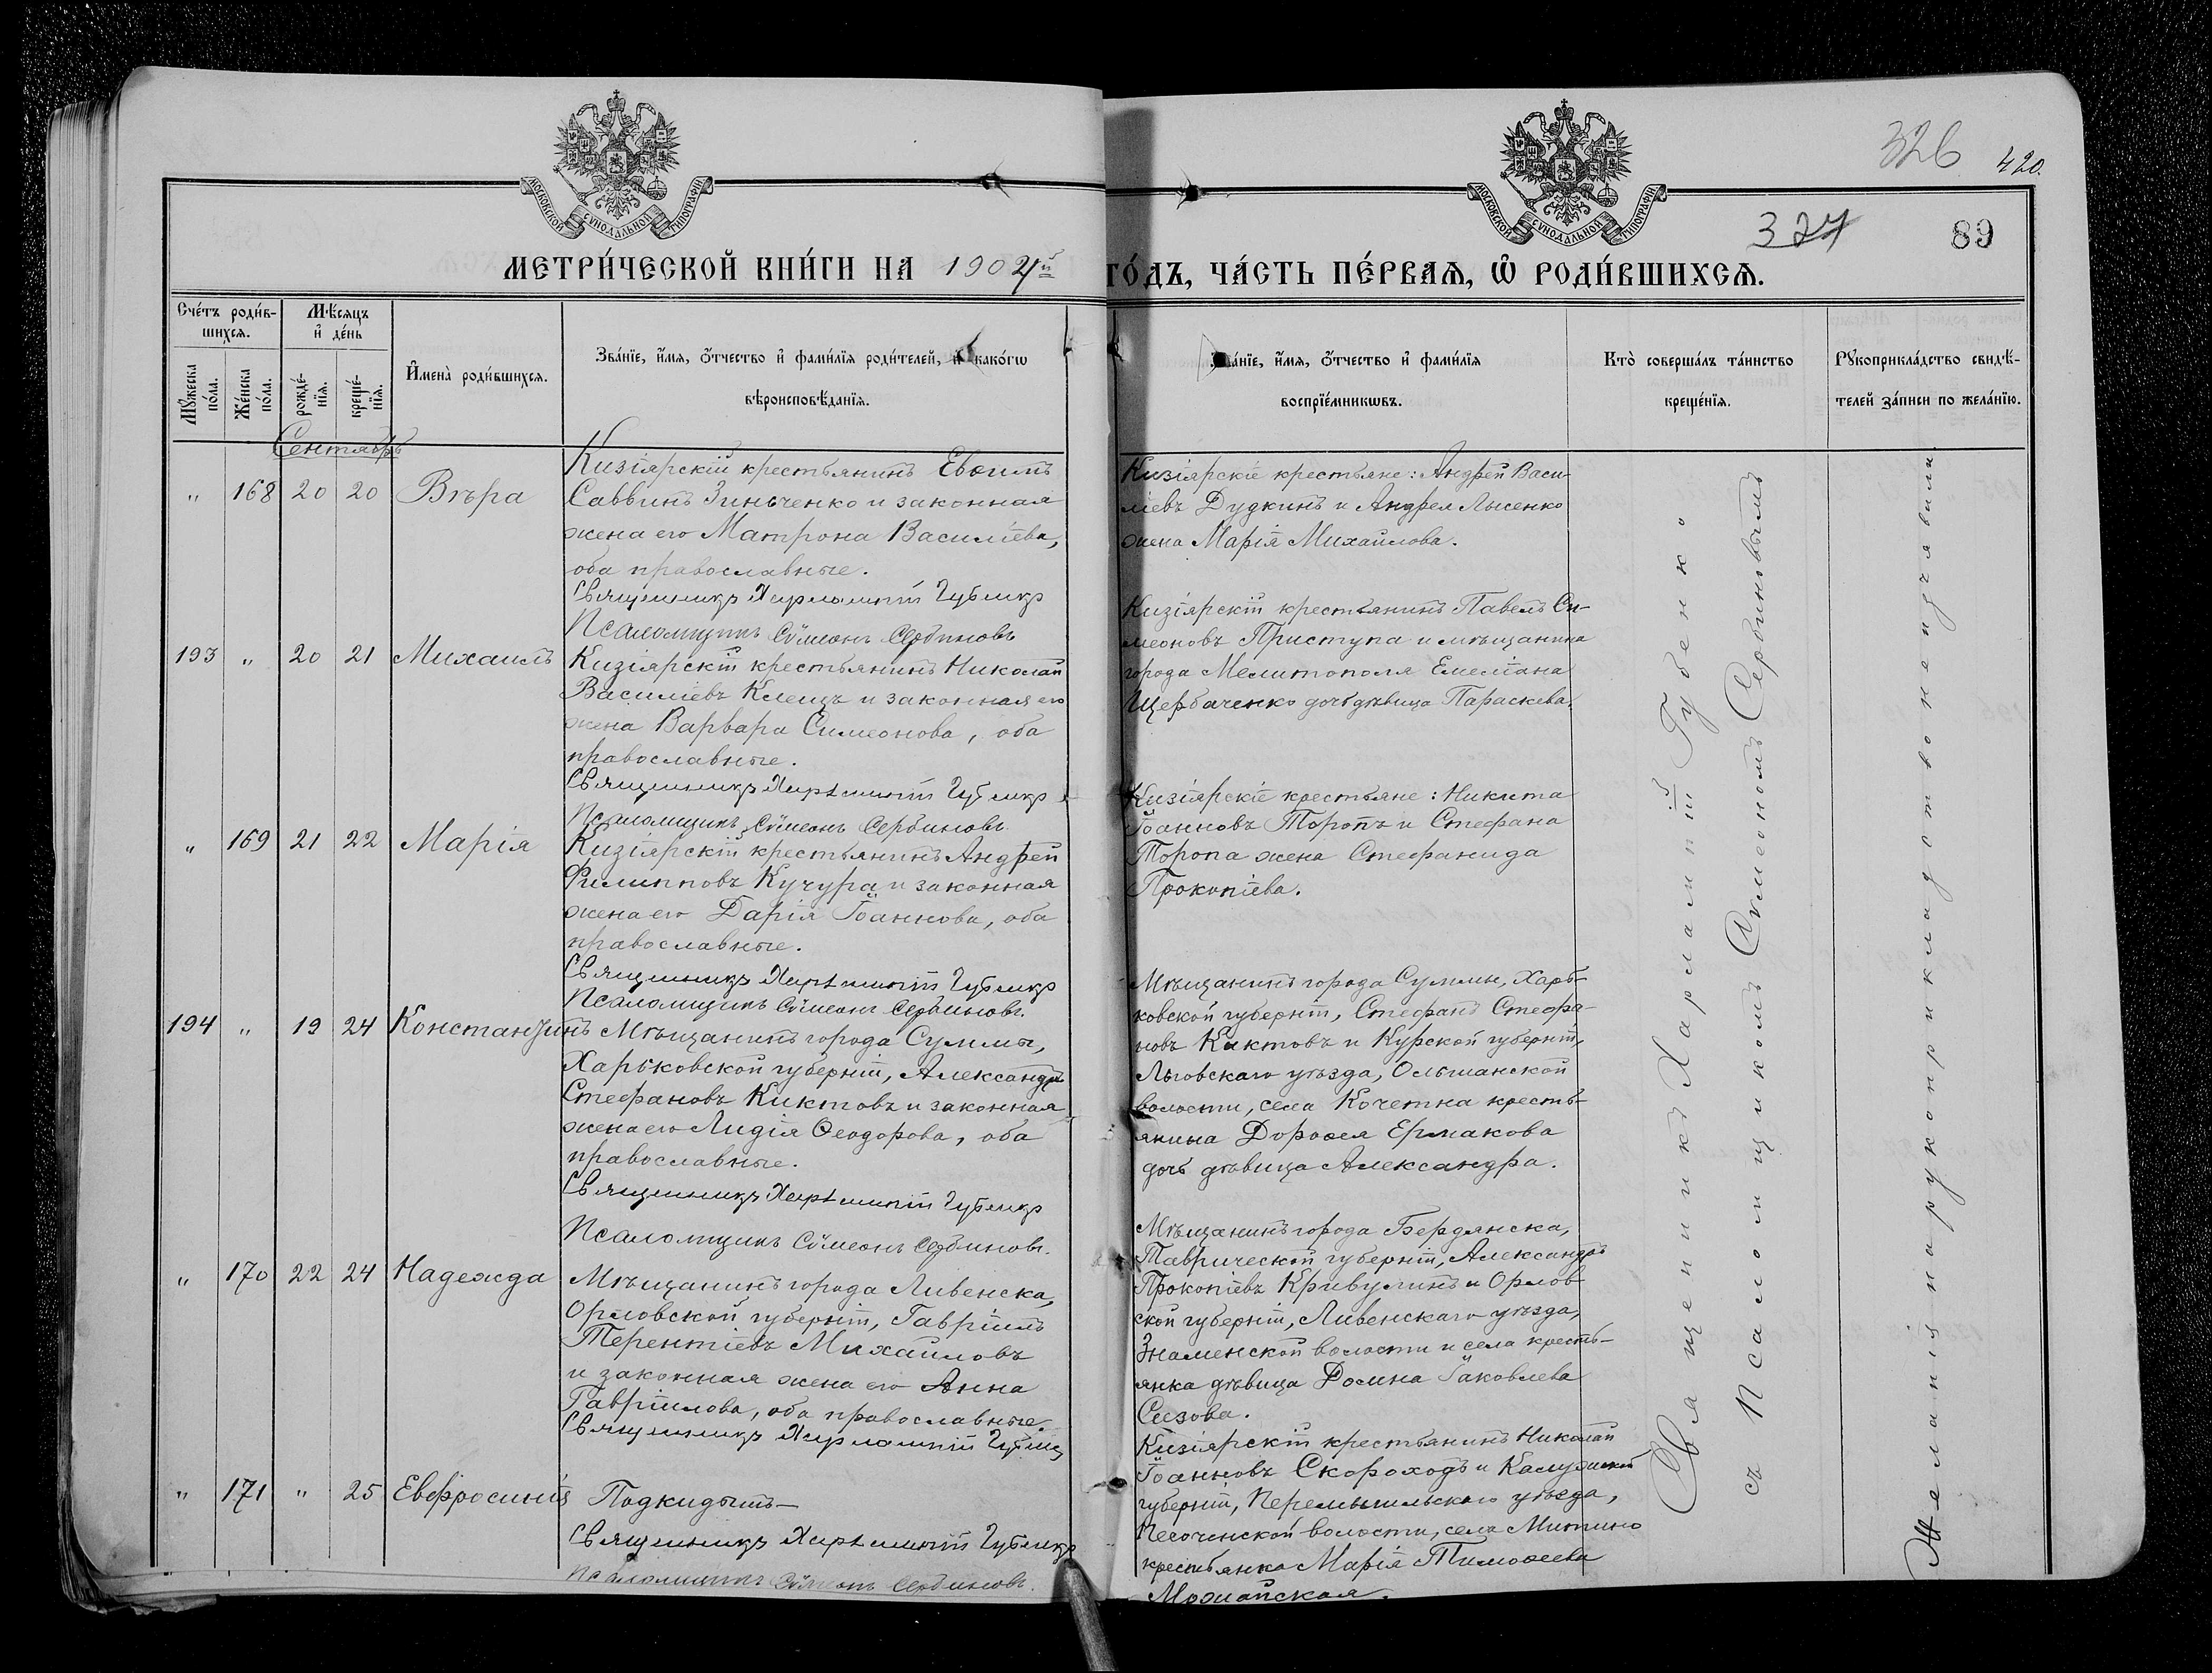 326
420.
327
89
МОСКОВСКОЙ СѴНОДАЛЬНОЙ ТИПОГРАФІИ
МОСКОВСКОЙ СѴНОДАЛЬНОЙ ТИПОГРАФІИ
МЕТРИ́ЧЕСКОЙ КНИ́ГИ НА 1904й ГО́ДЪ, ЧА́СТЬ ПЕ́РВАЯ, Ѡ РОДИ́ВШИХСЯ.
Сче́тъ роди́в-
шихся.
Мꙋ́жеска по́ла.
Же́нска по́ла.
Мѣ́сяцъ
и҆ де́нь
рожде́-
нїя.
креще́-
нїя.
И҆мена̀ роди́вшихся.
Зва́нїе, и҆́мя, ѻ҆́тчество и҆ фами́лїя роди́телей, и҆ како́гѡ
вѣроисповѣ́данїя.
Зва́нїе, и҆́мя, ѻ҆́тчество и҆ фами́лїя
воспрїе́мникѡвъ.
Кто̀ соверша́лъ та́инство
креще́нїя.
Рꙋкоприкла́дство свидѣ́-
телей за́писи по жела́нїю.
Сентябрь
" 168 20 20 Вѣра
Кизіярскій крестьянинъ Евѳимъ
Саввинъ Зинченко и законная
жена его Матрона Василіева,
оба православные.
Священникъ Харлампій Губенко
Псаломщикъ Сѵмеонъ Сербиновъ
Кизіярскіе крестьяне: Андрей Васи-
ліевъ Дудкинъ и Андрея Лысенко
жена Марія Михайлова.
193 " 20 21 Михаилъ
Кизіярскій крестьянинъ Николай
Василіевъ Клещъ и законная его
жена Варвара Симеонова, оба
православные.
Священникъ Харлампій Губенко
Псаломщикъ Сѵмеонъ Сербиновъ
Кизіярскій крестьянинъ Павелъ Си-
меоновъ Приступа и мѣщанина
города Мелитополя Емеліана
Щербаченко дочь дѣвица Параскева.
" 169 21 22 Марія
Кизіярскій крестьянинъ Андрей
Филипповъ Кучура и законная
жена его Дарія Іоаннова, оба
православные.
Священникъ Харлампій Губенко
Псаломщикъ Сѵмеонъ Сербиновъ.
Кизіярскіе крестьяне: Никита
Іоанновъ Торопъ и Стефана
Торопа жена Стефанида
Прокопіева.
194 " 19 24 Константинъ
Мѣщанинъ города Суммы,
Харьковской губерніи, Александръ
Стефановъ Киктовъ и законная
жена его Лидія Ѳеодорова, оба
православные.
Священникъ Харлампій Губенко
Псаломщикъ Сѵмеонъ Сербиновъ.
Мѣщанинъ города Суммы, Харь-
ковской губерніи, Стефанъ Стефа-
новъ Киктовъ и Курской губерніи,
Льговскаго уѣзда, Ольшанской
волости, села Кочетна кресть-
янина Дороѳея Ермакова
дочь дѣвица Александра.
" 170 22 24 Надежда
Мѣщанинъ города Ливенска,
Орловской губерніи, Гавріилъ
Терентіевъ Михайловъ
и законная жена его Анна
Гавріилова, оба православные.
Священникъ Харлампій Губенко
Мѣщанинъ города Бердянска,
Таврической губерніи, Александръ
Прокопіевъ Кривулинъ и Орлов-
ской губерніи, Ливенскаго уѣзда,
Знаменской волости и села кресть-
янка дѣвица Домна Іаковлева
Сизова.
" 171 " 25 Евфросинія
Подкидышъ—
Священникъ Харлампій Губенко
Псаломщикъ Сѵмеонъ Сербиновъ.
Кизіярскій крестьянинъ Николай
Іоанновъ Скороходъ и Калужской
губерніи, Перемышльскаго уѣзда,
Песоченской волости, села Митино
крестьянка Марія Тимоѳеева
Можайская.
Священникъ Харлампій Губенко
съ Псаломщикомъ Сѵмеономъ Сербиновымъ
Желанія на рукоприкладство не изъявили